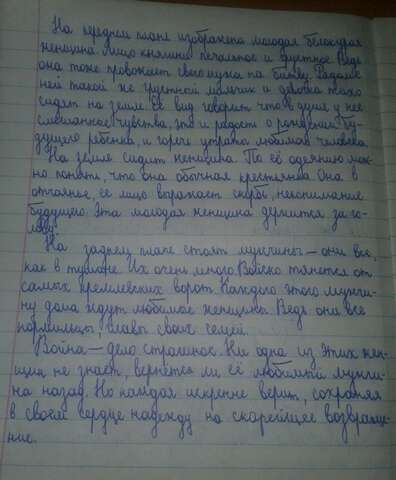 На среднем плане изображена молодая белокурая
женщина. Лицо княгини печальное и грустное. Ведь
она тоже провожает своего мужа на битву. Рядом с
ней такой же грустный мальчик и девочка тихо
сидят на земле. Её вид говорит что в душе у неё
смешанное чувства, это и радость о рождении бу-
дущего ребенка, и горечь утраты любимого человека.
На земле сидит женщина. По её одеянию мож-
но понять, что она обычная крестьянка. Она в
отчаяние, её лицо выражает скорбь, непонимание
будущего. Эта молодая женщина держится за го-
лову.
На заднем плане стоят мужчины – они все,
как в тумане. Их очень много. Войско тянется от
самых кремлевских ворот. Каждого этого мужчи-
ну дома ждут любимое женщины. Ведь они все
кормильцы, главы своих семей.
Война – дело страшное. Ни одна из этих жен-
щин не знает, вернется ли её любимый мужчи-
на назад. Но каждая искренне верит, сохраняя
в своем сердце надежду на скорейшее возвраще-
ние.